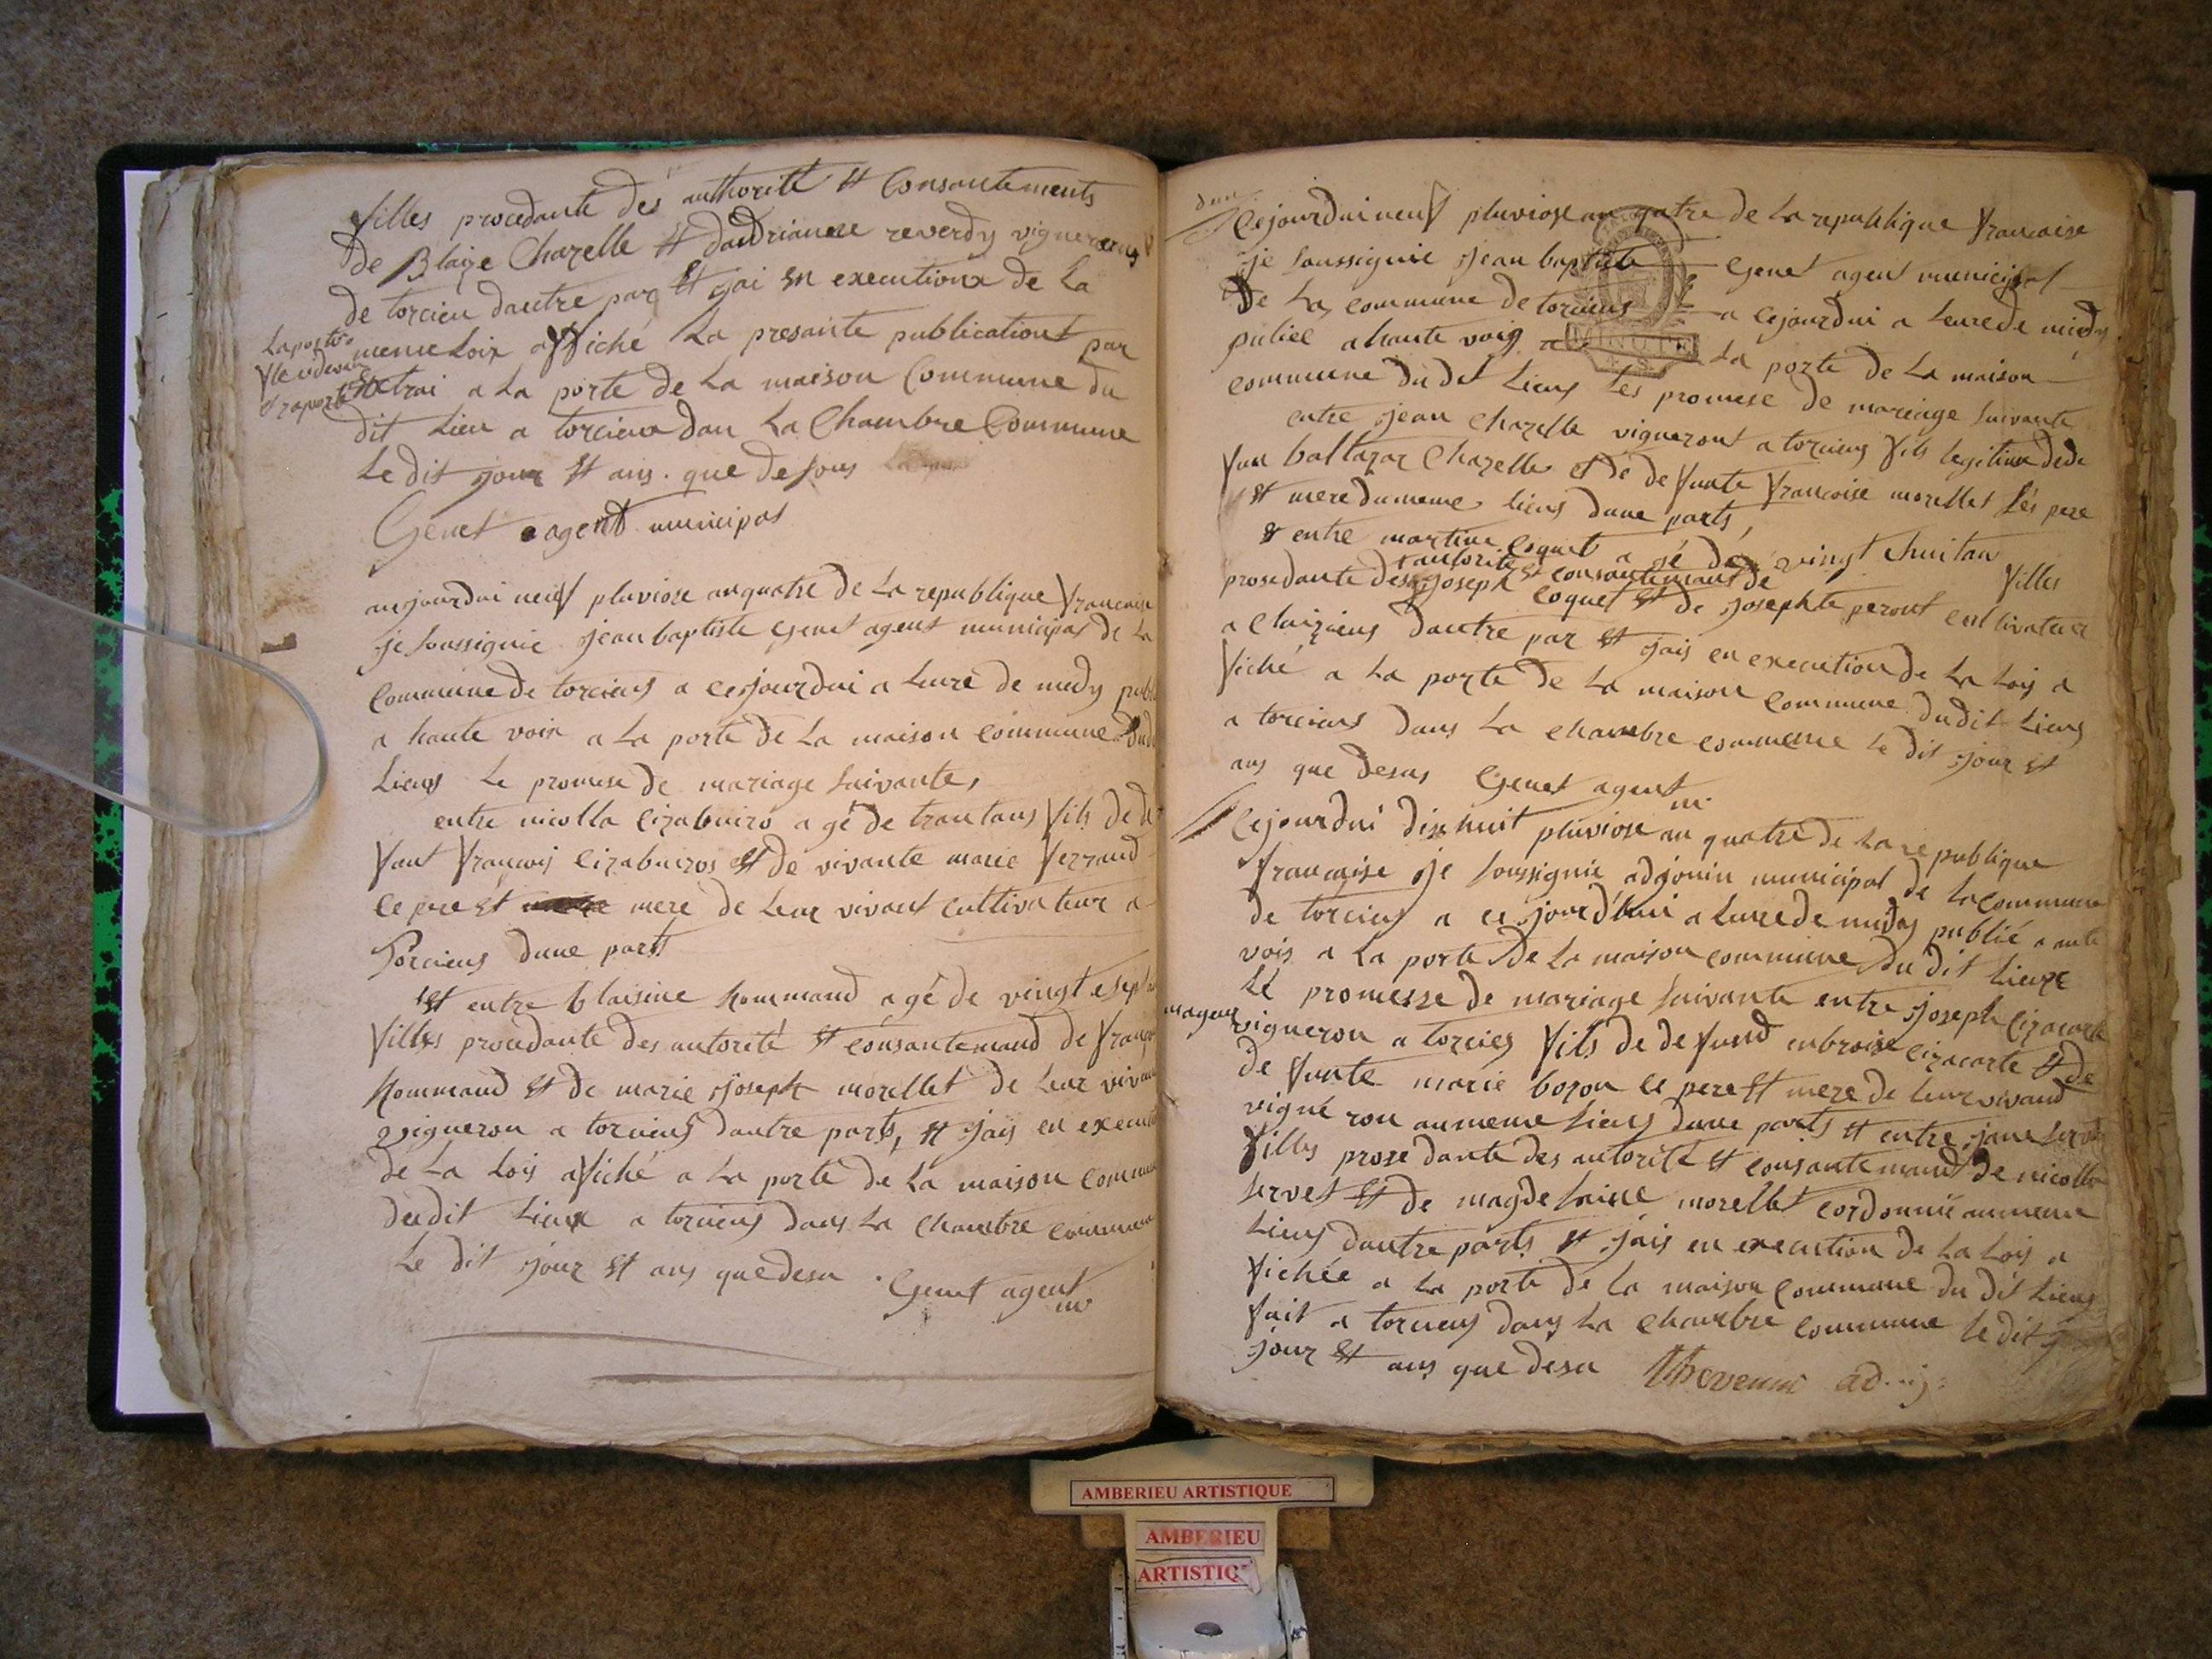 filles procedante des authorité et Consantements
de Blaize Chazelle et daudrianne reverdy vignerons
de torcieu dautre par et jai en exécutionx de la
meme Loix affiché La presante publicationt par
extrai a La porte de La maison Commune du
dit Lieu a torcieux dan La Chambre Commune
Le dit jour et ans. que desous
Genet agent municipal
aujourdui neuf pluviose anquatre de La republique francaise
je soussignie jean baptiste genet agent municipal de La
Commune de torcieus a cejourdui a Leure de midy publ
a haute voix a La porte de La maison Commune dud
Lieus Le promese de mariage suivante,
entre nicolla cizabuiro a gé de trantans fils de de
funt francois cizabuiros et de vivante marie ferrand
ce pere et mere de Leur vivant cultivateur a
Torcieus dune parts
et entre blaisine hommand agé de vingt esept
filles procedante des autorité et consantemand de franco
hommand et de marie joseph morellet de Leur vivan
vigneron a torcieus dautre parts, et jais en executi
de La Lois afiché a La porte de La maison commun
dudit Lieux a torcieus dans La Chambre commun
Le dit jour et ans quedesu. Genet agent
m
Cejourdui neuf pluviose an qatre de La republique francaise
je soussignie jean baptiste Genet agent municipal
De La commune de torcieus a cejourdui a Leure de midy
publiee a haute voix a La porte de La maison
commune du dit Lieus Les promese de mariage suivante
entre jean Chazelle vigneront a torcieus fils legitime dede
fun baltazar Chazelle et de defunte francoise morellet Lés pere
et mere dumeme lieus dune parts,
et entre martine coquet a gé de vingt huitan filles
autorité et consantemant de
prosedante des joseph coquet et de josephte peront cultivateur
a Claizieus dautre par et jais en execution de La Lois a
fiché a La porte de La maison commune dudit Lieus
a torcieus dans La chambre commune Le dit jour et
ans que desus Genet agent
m.
Cejourdui dixhuit pluviose an quatre de La republique
francaise je soussignie adjouin municipal de La commune
de torcieus a ce jourdhui a Leure de midy publié a aute
vois a La porte de La maison commune du dit Lieux
Lé promesse de mariage suivante entre joseph cizacarte
mageur
vigneron a torcieus fils de defund enbroise cizacarte et de
de funte marie bozon ce pere et mere de leur vivand
vigné ron aumeme Lieus dune parts et entre jane servet
filles prose dante des autorité et consantemand de nicolla
servet et de magdelaine morellet cordonnié aumeme
Lieus dautre parts et jais en execution de La Lois a
fichée a La porte de La maison Commune du dit Lieus
fait a torcieus dans La Chambre commune Le dit
jour et ans que desu thevenin adj.
AMBERIEU ARTISTIQUE
AMBERIEU
ARTISTIQ